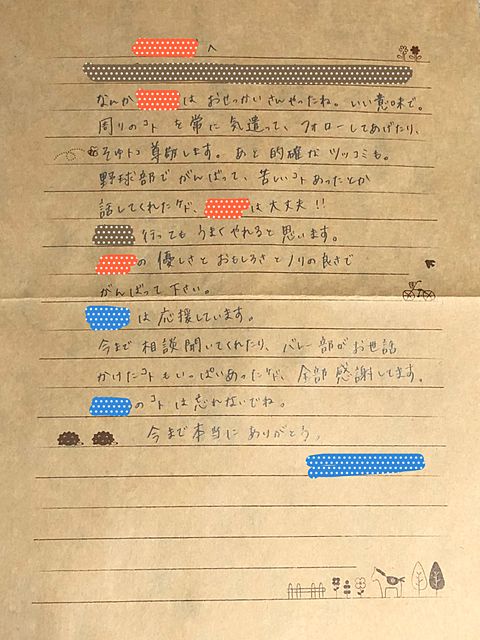 へ
なんか は おせっかいさんやったね。いい意味で。
周りのコト を 常に 気遣って、フォローしてあげたり、
そゆトコ 尊敬します。あと 的確な ツッコミも。
野球部で がんばって、苦しいコト あったとか
話してくれたケド、 は 大丈夫!!
行っても うまくやれると 思います。
の 優しさと おもしろさと ノリの良さで
がんばって 下さい。
は 応援しています。
今まで 相談聞いてくれたり、バレー部が お世話
かけたコトも いっぱいあったケド、全部 感謝してます。
のコトは 忘れないでね。
今まで 本当に ありがとう。